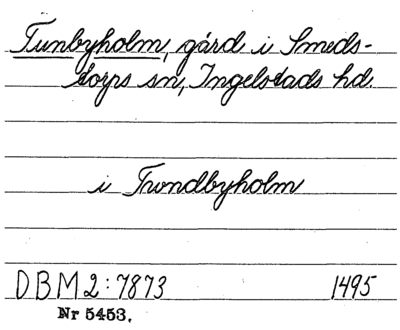 Tunbyholm, gård i Smeds-
torps sn, Ingelstads hd.
i Trondbyholm
DBM 2:7873 1495
Nr 5453.